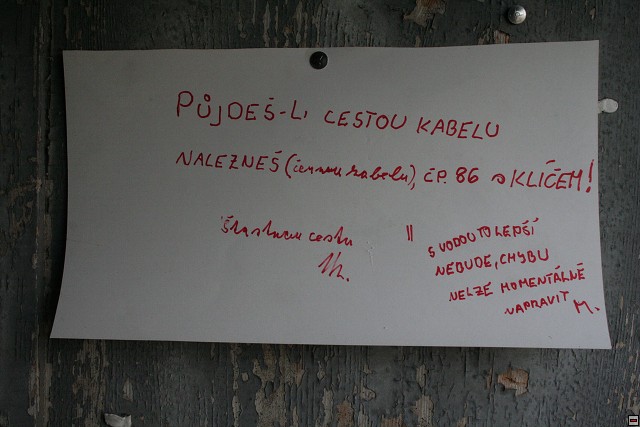 PŮJDEŠ-LI CESTOU KABELU
NALEZNEŠ (černou kabelu), ČP. 86 S KLÍČEM!
Šťastnou cestu
M.
" S VODOU TO LEPŠÍ
NEBUDE, CHYBU
NELZE MOMENTÁLNĚ
NAPRAVIT M.